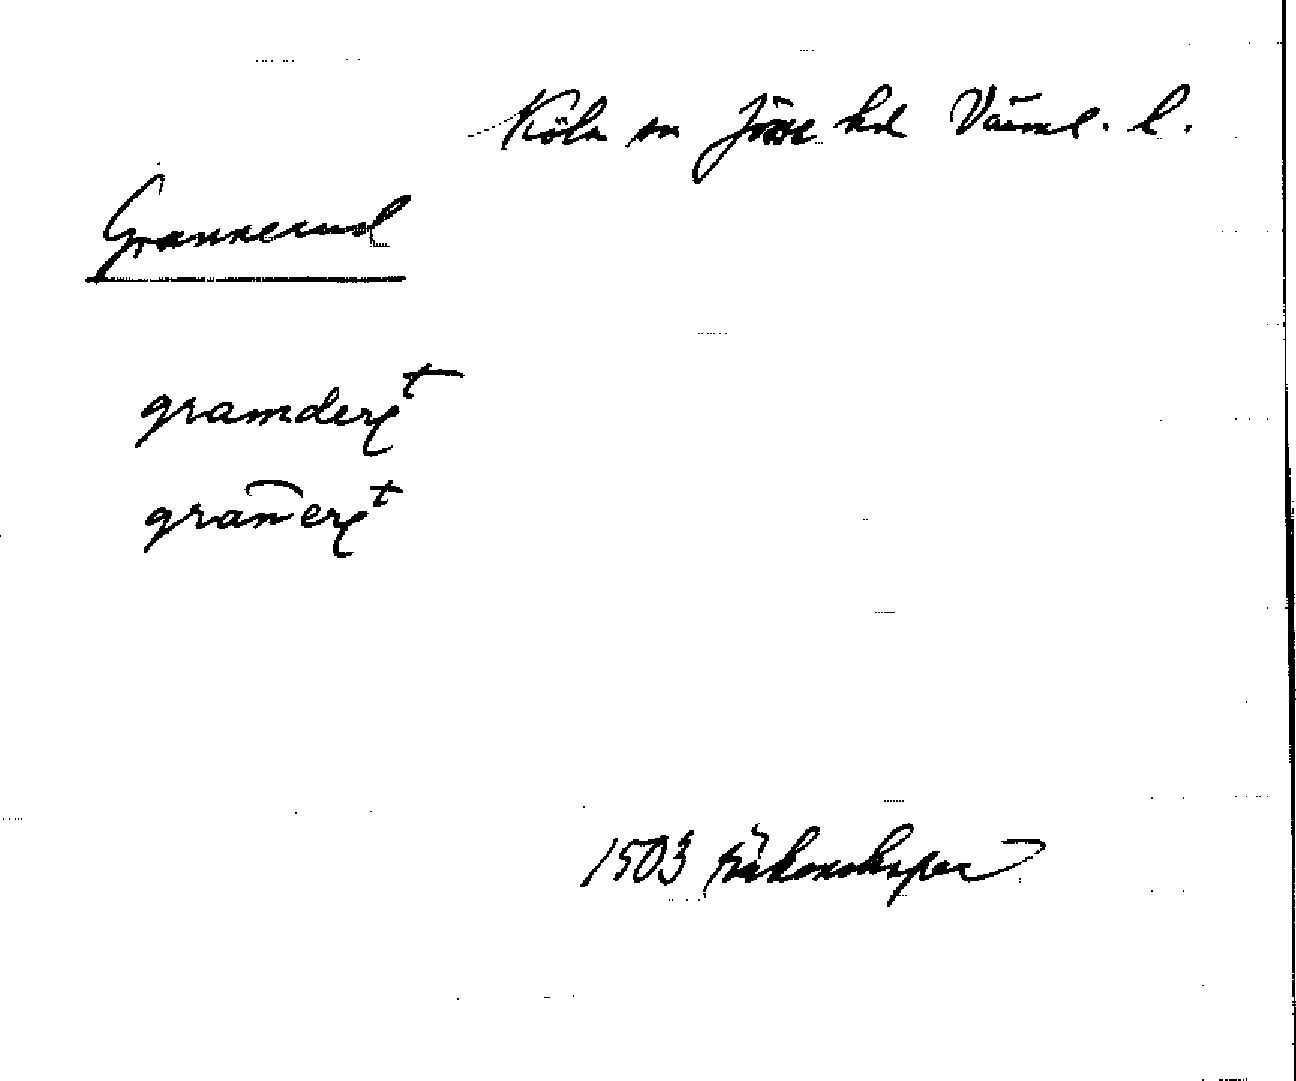 Köla sn Jösse hd Värml. l.
Grannerud
gramderȩt
gran̄erȩt
1503 räkenskaper